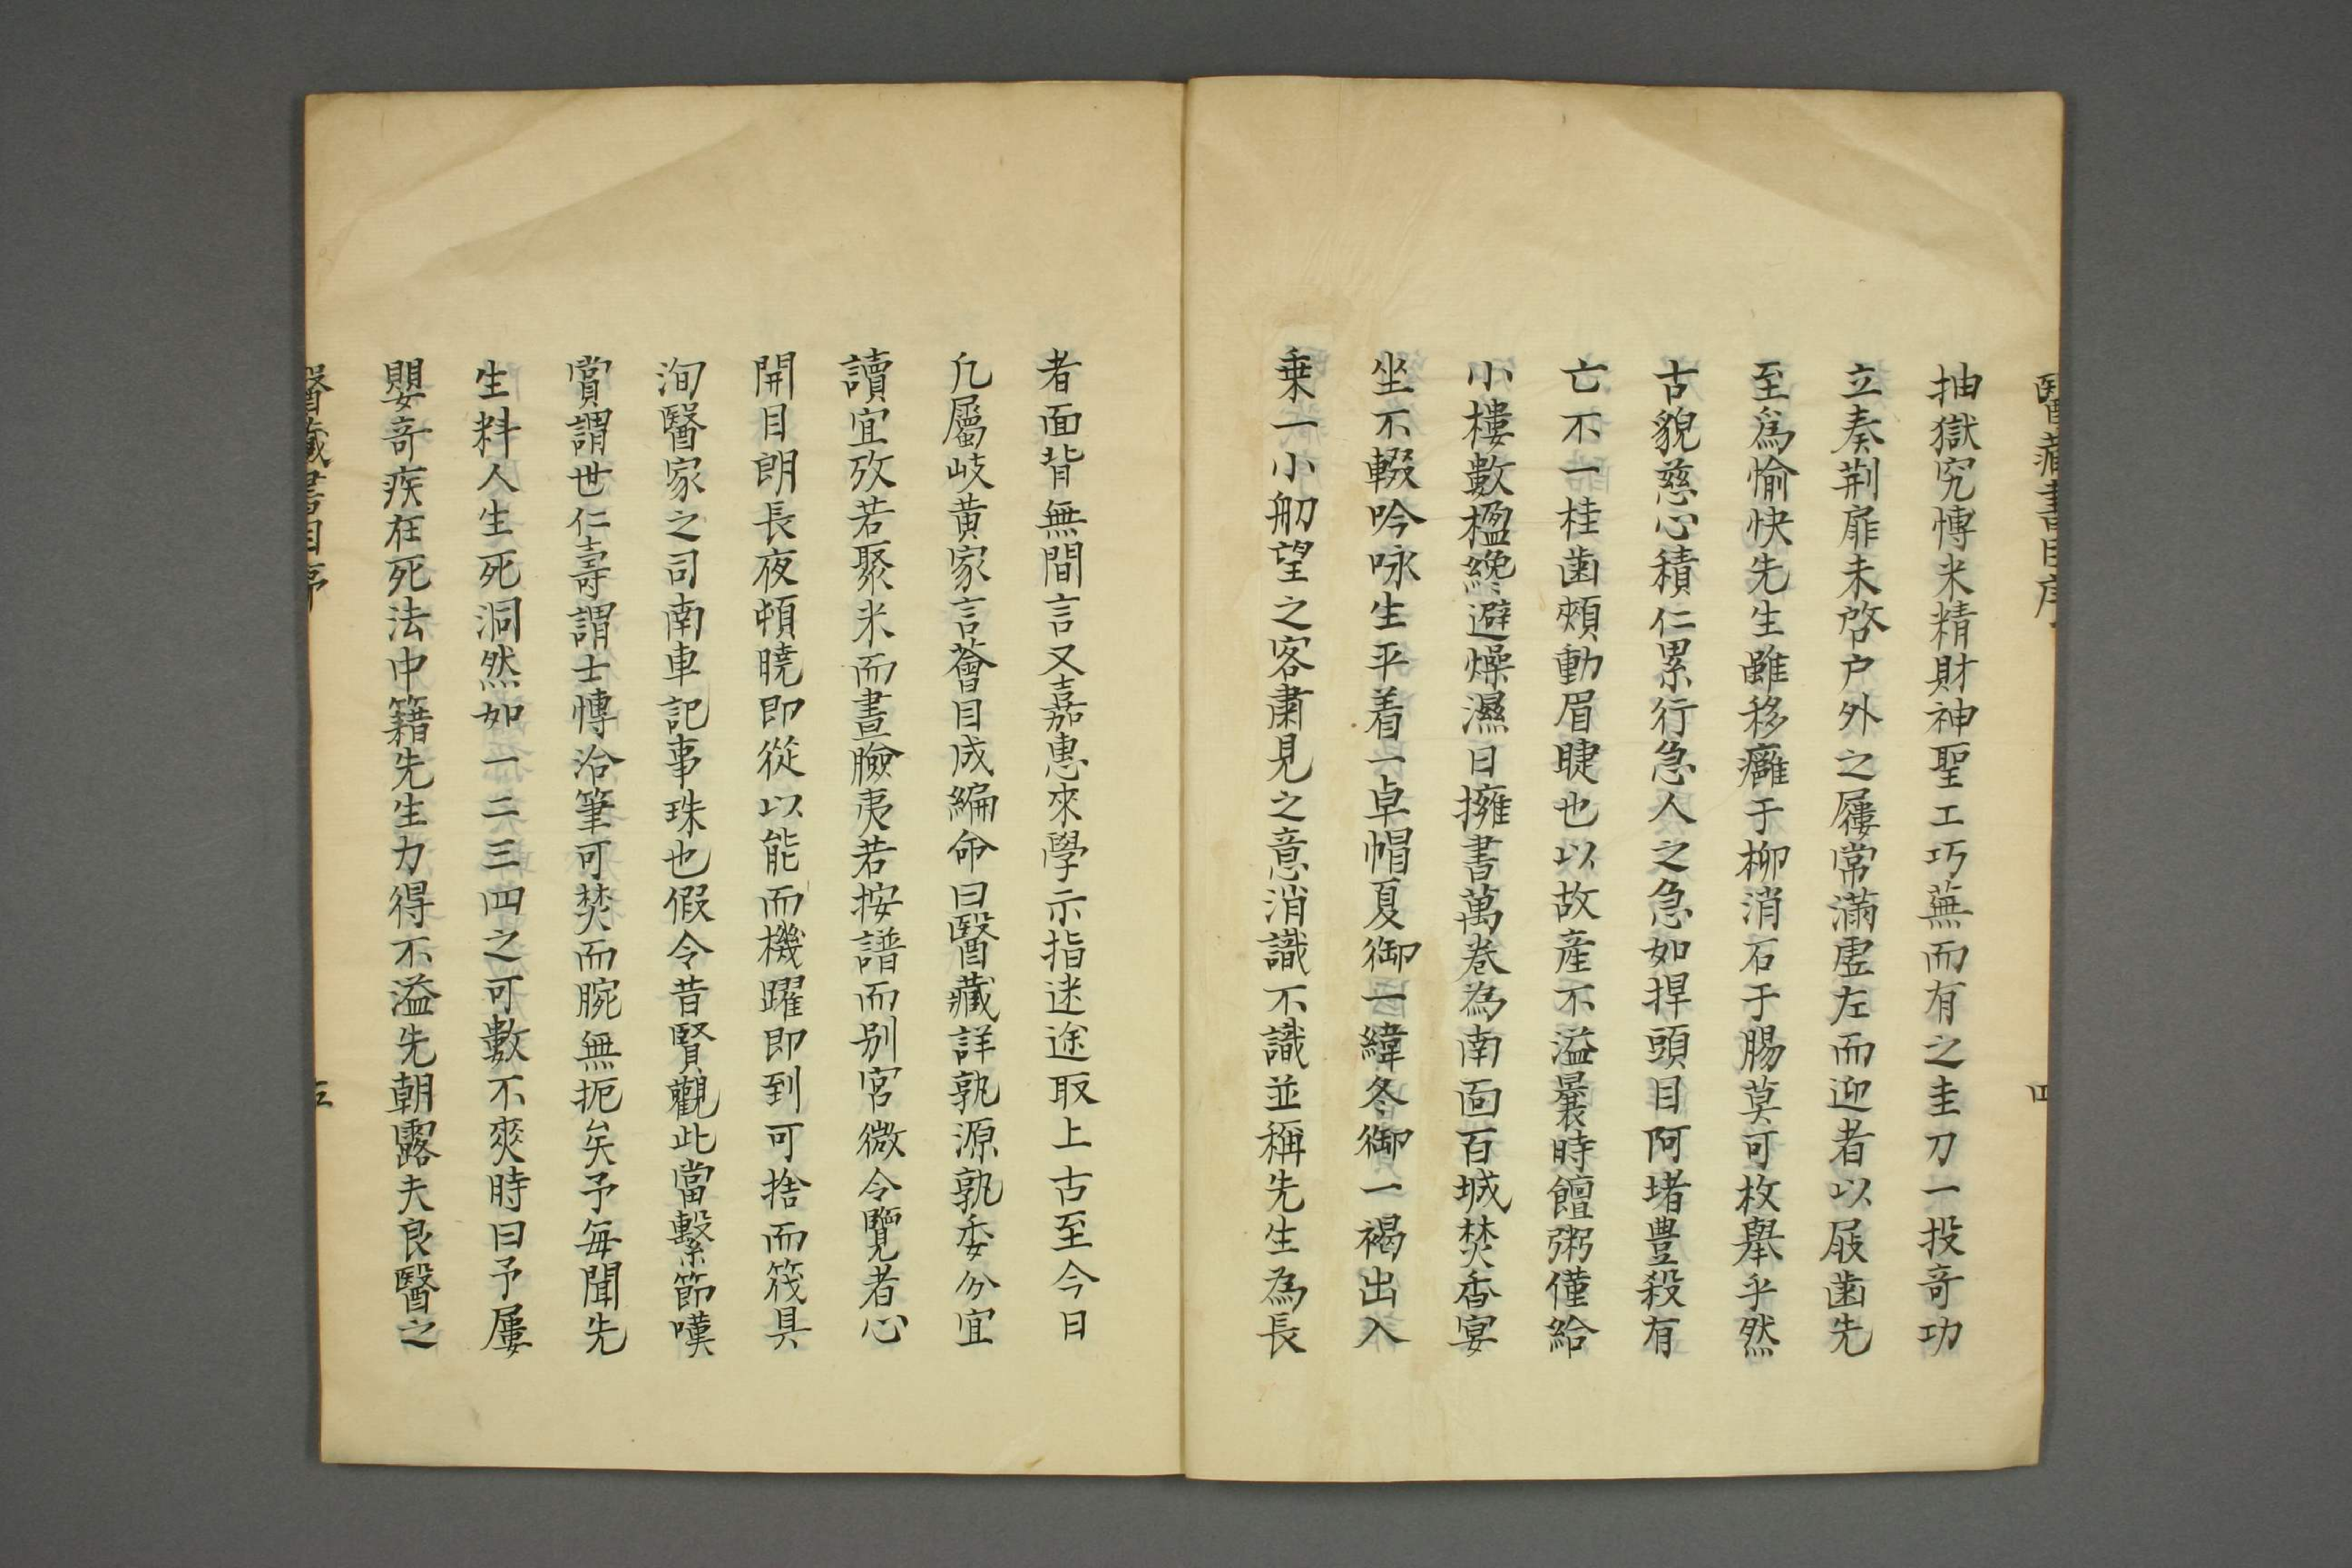 醫藏書目序
四
抽獄究慱米精財神聖工巧蕪而有之圭刀一投竒功
立奏荆扉未啓户外之屨常滿虛左而迎者以屐齒先
至爲愉快先生雖移癰于柳消石于腸莫可枚舉乎然
古貌慈心積仁累行急人之急如捍頭目阿堵豊殺有
亡不一桂齒頰動眉睫也以故產不溢曩時饘粥僅給
小樓數楹纔避燥濕日擁書萬巻為南面百城焚香宴
坐不輟吟咏生平着一皁帽夏御一緯冬御一褐出入
乗一小舠望之客肅見之意消識不識並稱先生為長
者面背無間言又嘉惠來學示指迷途取上古至今日
凢屬岐黄家言薈目成編命曰醫藏詳孰源孰委分宜
讀宜攷若聚米而晝臉夷若按譜而别宮微令覽者心
開目朗長夜頓曉即從以能而機躍即到可捨而筏具
洵醫家之司南車記事珠也假令昔賢觀此當繫節嘆
賞謂世仁壽謂士慱洽筆可焚而腕無扼矣予每聞先
生料人生死洞然如一二三四之可數不爽時曰予屢
嬰竒疾在死法中籍先生力得不溢先朝露夫良醫之
醫藏書目序
五